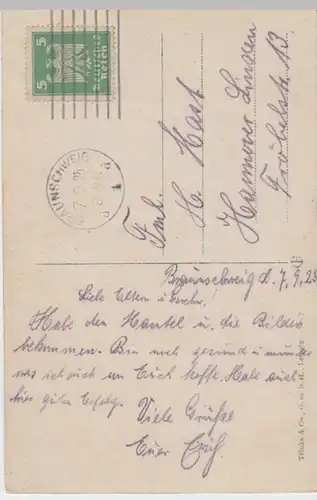 5 Deutsches Reich 5
BRAUNSCHWEIG
Fml.
H. Hast
Hannover Linden
Fröbelstr. 13
Braunschweig d. 7.9.25
Liebe Eltern u.
Habe den Mantel u. die Bilder
bekommen. Bin noch gesund u. munter
was ich auch von Euch hoffe. Habe auch
hier guten Erfolg.
Viele Grüsse
Euer Erich.
Trinks & Co., G. m. b. H., Leipzig